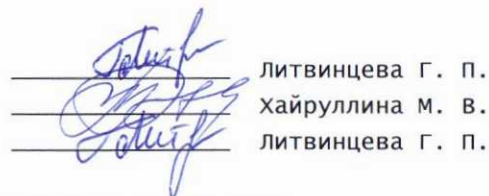 Литвинцева Г. П.
Хайруллина М. В.
Литвинцева Г. П.